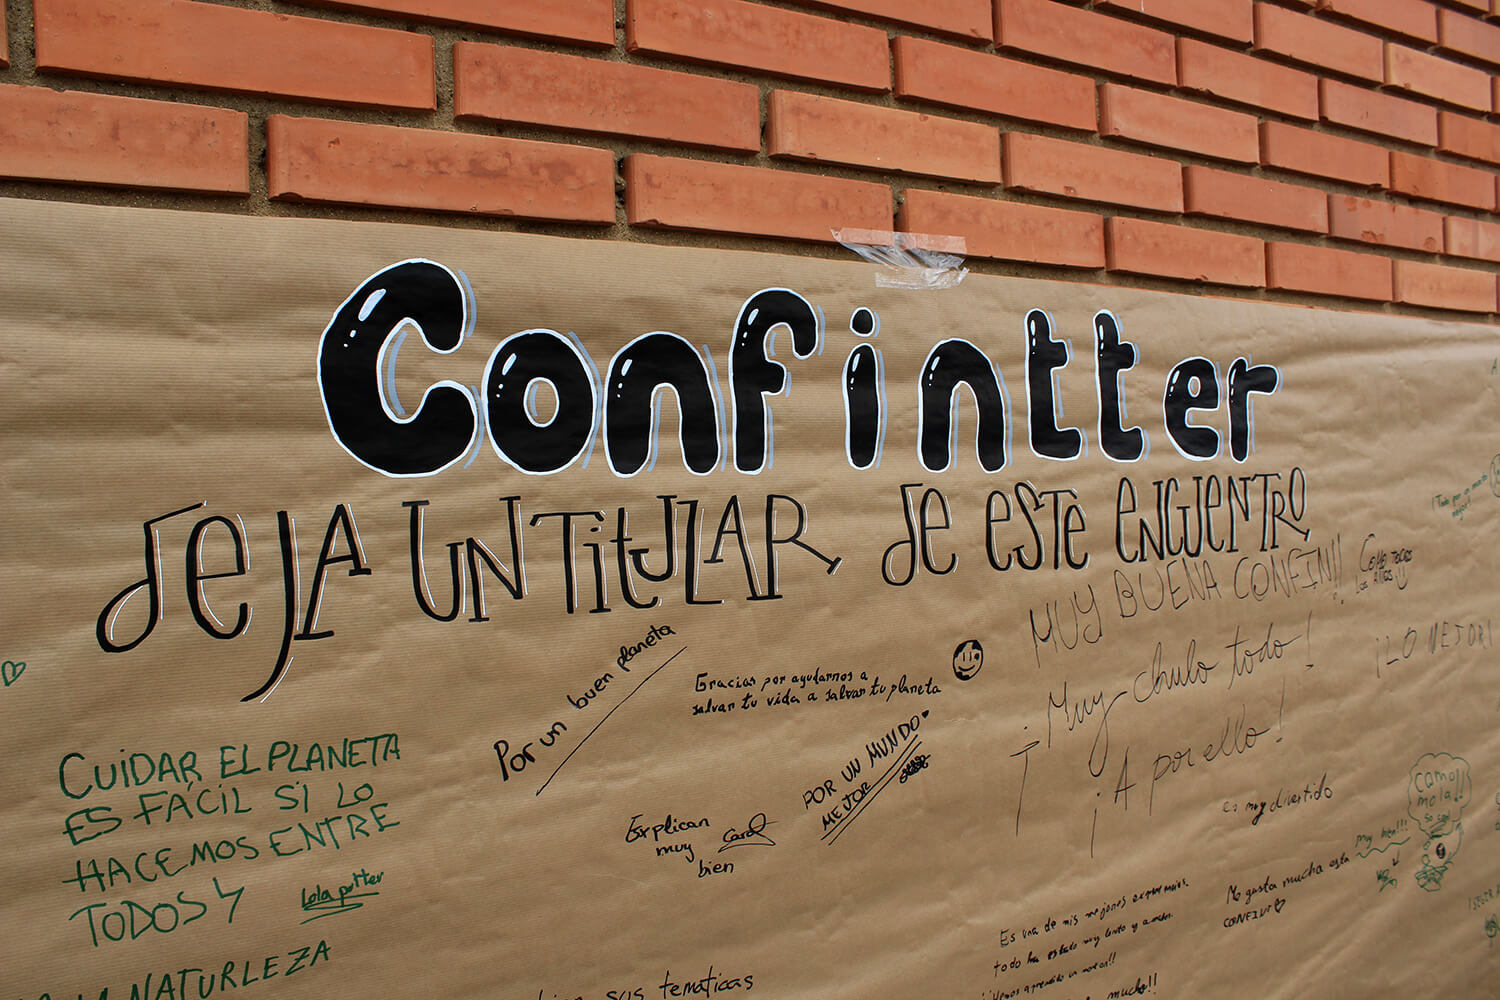 Confintter
deja un titular de este encuentro
MUY BUENA CONFINT!!
COMO TODOS
LOS AÑOS
¡LO MEJOR!
Por un buen planeta
Gracias por ayudarnos a
salvar tu vida a salvar tu planeta
¡Muy chulo todo!
¡A por ello!
CUIDAR EL PLANETA
ES FÁCIL SI LO
HACEMOS ENTRE
TODOS Y
Lola potter
NATURLEZA
Explican
muy
bien
Carol
POR UN MUNDO
MEJOR
Es muy divertido
COMO
mola!!
Me gusta mucho esta
CONFINT
muy bien!!!
Es una de mis mejores experiencias.
todo ha estado muy
mucho!!
sus tematicas